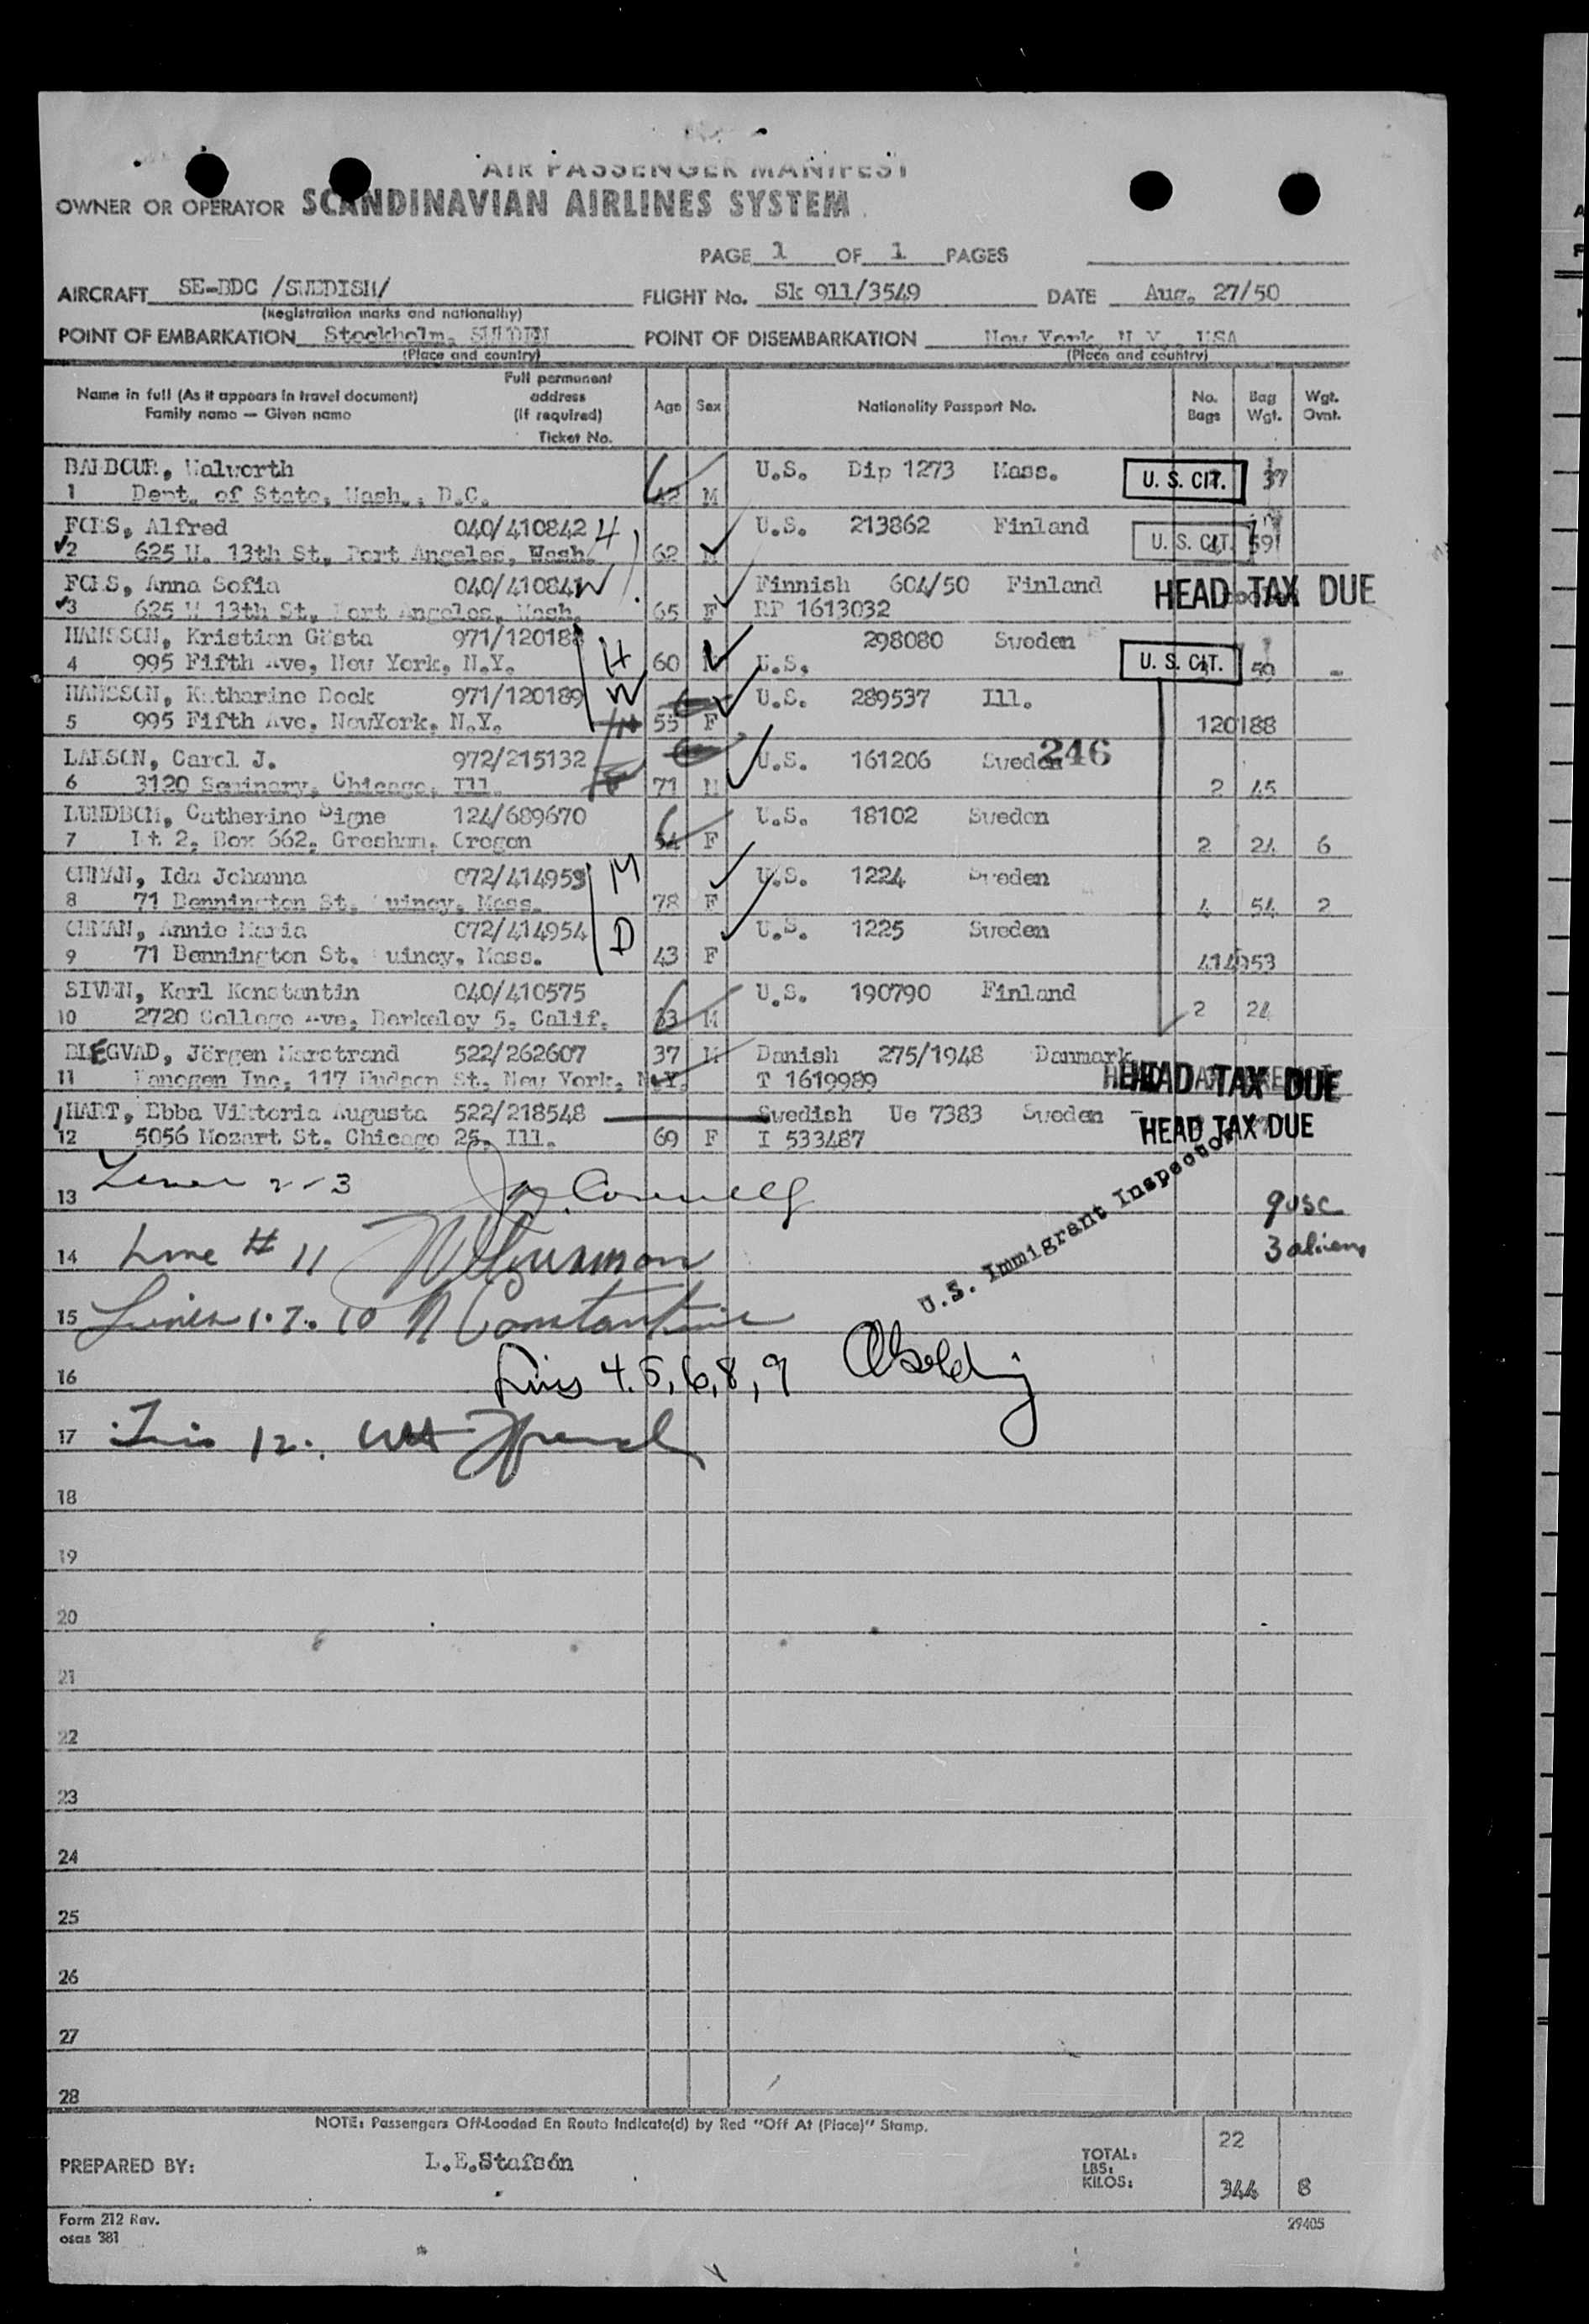 AIR PASSENGER MANIFEST
OWNER OR OPERATOR SCANDINAVIAN AIRLINES SYSTEM
PAGE 1 OF 1 PAGES
AIRCRAFT SE-BDC /SWEDISH/ FLIGHT No. Sk 911/3549 DATE Aug. 27/50
(Registration marks and nationality)
POINT OF EMBARKATION Stockholm, SWEDEN POINT OF DISEMBARKATION New York, N.Y., USA
(Place and country) (Place and country)
Name in full (As it appears in travel document) Family name — Given name Full permanent address (If required) Ticket No. Age Sex Nationality Passport No. No. Bags Bag Wgt. Wgt. Ovnt.
Walworth U.S. Dip 1273 Mass. U. S. CIT. 37
1 Dept. of State, Wash., D.C. 42 M
Alfred 040/410842 H U.S. 213862 Finland U. S. CIT. 59
2 625 W. 13th St, Port Angeles, Wash. 62 M
Anna Sofia 040/410841 W Finnish 604/50 Finland HEAD TAX DUE
3 625 W 13th St, Port Angeles, Wash. 65 F RP 1613032
HANSSON, Kristian Gösta 971/120188 H 298080 Sweden
4 995 Fifth Ave, New York, N.Y. 60 M U.S. U. S. CIT. 50 -
HANSSON, Katharine Dock 971/120189 W U.S. 289537 Ill.
5 995 Fifth Ave, NewYork, N.Y. 55 F 120188
LARSON, Carol J. 972/215132 U.S. 161206 Sweden 246
6 3120 Seminary, Chicago, Ill. 71 M 2 45
LUNDBOM, Catherine Signe 124/689670 U.S. 18102 Sweden
7 Rt 2, Box 662, Gresham, Oregon 54 F 2 24 6
OHMAN, Ida Johanna 072/414953 M U.S. 1224 Sweden
8 71 Bennington St, Quincy, Mass. 78 F 4 54 2
OHMAN, Annie Maria 072/414954 D U.S. 1225 Sweden
9 71 Bennington St, Quincy, Mass. 43 F 414953
SIVEN, Karl Konstantin 040/410575 U.S. 190790 Finland
10 2720 College Ave, Berkeley 5, Calif. M 2 24
BLEGVAD, Jörgen Marstrand 522/262607 37 M Danish 275/1948 Danmark
11 Hanogen Inc, 117 Hudson St, New York, N.Y. T 1619989 HEAD TAX DUE
HART, Ebba Viktoria Augusta 522/218548 Swedish Ue 7383 Sweden -
12 5056 Mozart St. Chicago 25, Ill. 69 F I 533487 HEAD TAX DUE
U.S. Immigrant Inspector
13 Lines 2-3 9 USC
14 Line # 11 3 aliens
15 Lines 1.7.10 N Constantine
16 Lines 4.5,6,8,9 Golding
17 Line 12.
18
19
20
21
22
23
24
25
26
27
28
NOTE: Passengers Off-Loaded En Route Indicate(d) by Red "Off At (Place)" Stamp.
PREPARED BY: L.E.Stafsén TOTAL: 22
LBS:
KILOS: 344 8
Form 212 Rev.
osas 381 29405